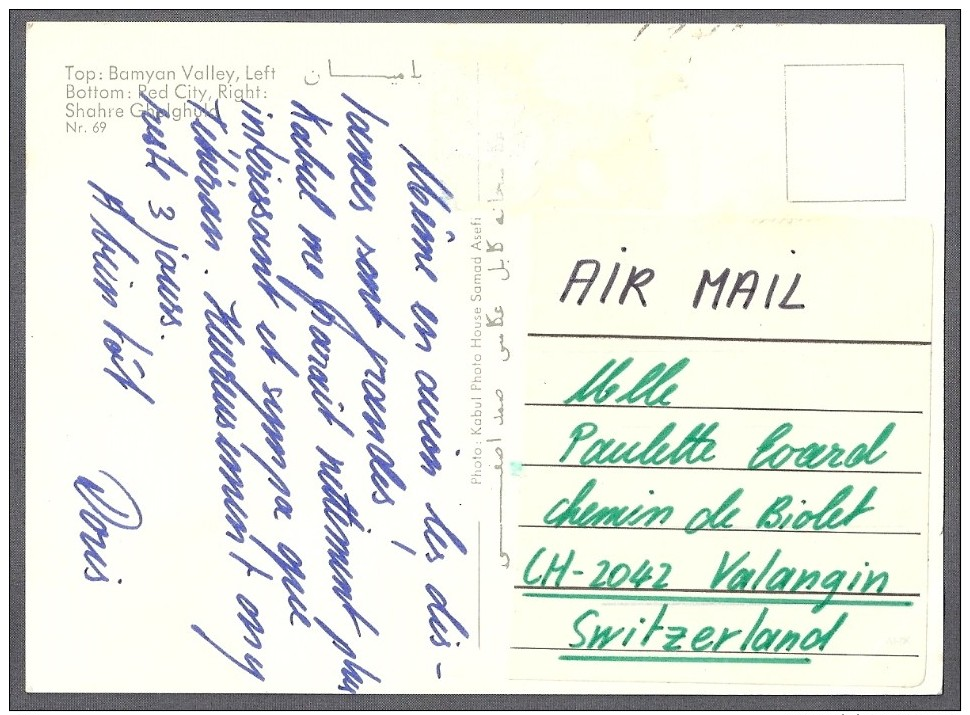 Top: Bamyan Valley, Left
Bottom: Red City, Right:
Shahre Gholghula
Nr. 69
بامیـــــان
Même en avion les dis-
tances sont grandes!
Kabul me paraît nettement plus
intéressant et sympa que
Téhéran. Heureusement on y
reste 3 jours.
A bientôt
Doris
Photo: Kabul Photo House Samad Asefi
کابل عکاسی صمد آصفی
AIR MAIL
Mlle
Paulette Evard
chemin de Biolet
CH-2042 Valangin
Switzerland